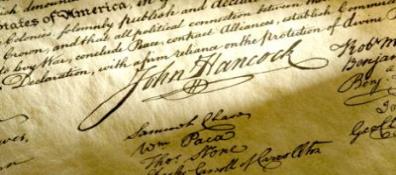 States of America, in
Colonies, solemnly publish and declare
Crown, and that all political connection between them
to levy War, conclude Peace, contract Alliances, establish Commerce
Declaration, with a firm reliance on the protection of divine
John Hancock
Rob
Samuel Chase
Benjamin
Wm Paca
Thos Stone
Geo
Charles Carroll of Carrollton